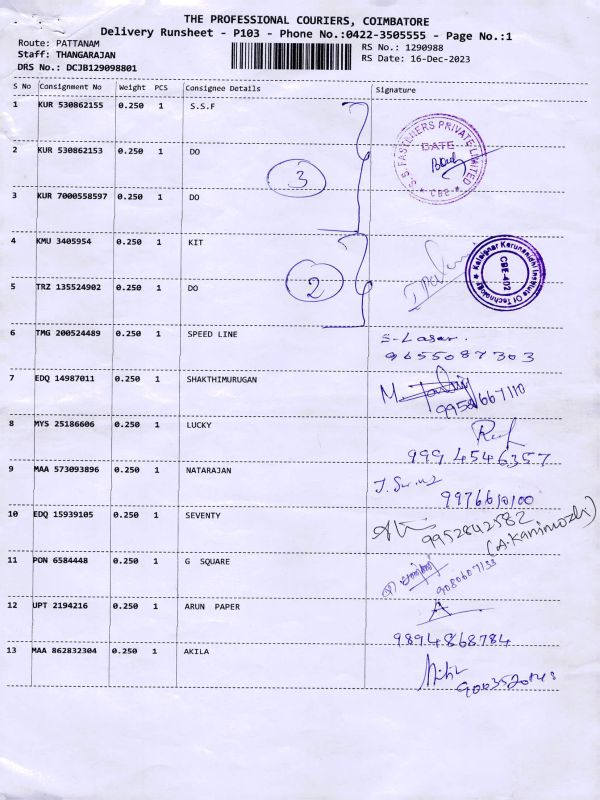 THE PROFESSIONAL COURIERS, COIMBATORE
Delivery Runsheet - P103 - Phone No.:0422-3505555 - Page No.:1
Route: PATTANAM
RS No.: 1290988
Staff: THANGARAJAN
RS Date: 16-Dec-2023
DRS No.: DCJB129098801
S No Consignment No Weight PCS Consignee Details Signature
1 KUR 530862155 0.250 1 S.S.F
S. S. FASTENERS PRIVATE LIMITED
DATE
* CBE *
2 KUR 530862153 0.250 1 DO
3
3 KUR 7000558597 0.250 1 DO
4 KMU 3405954 0.250 1 KIT
Kalaignar Karunanidhi Institute Of Technology
CBE-402
5 TRZ 135524902 0.250 1 DO
2
6 TMG 200524489 0.250 1 SPEED LINE
9655087303
7 EDQ 14987011 0.250 1 SHAKTHIMURUGAN
8 MYS 25186606 0.250 1 LUCKY
999 4546357
9 MAA 573093896 0.250 1 NATARAJAN
10 EDQ 15939105 0.250 1 SEVENTY
9952842582
(A.Kanimozhi)
11 PON 6584448 0.250 1 G SQUARE
9080607133
12 UPT 2194216 0.250 1 ARUN PAPER
9894868784
13 MAA 862832304 0.250 1 AKILA